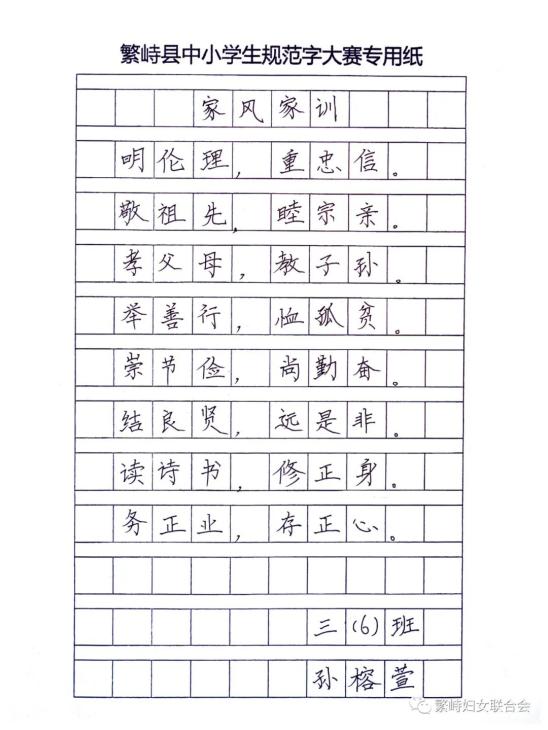 繁峙县中小学生规范字大赛专用纸
家风家训
明伦理，重忠信。
敬祖先，睦宗亲。
孝父母，教子孙。
举善行，恤孤贫。
崇节俭，尚勤奋。
结良贤，远是非。
读诗书，修正身。
务正业，存正心。
三(6)班
孙榕萱
繁峙妇女联合会